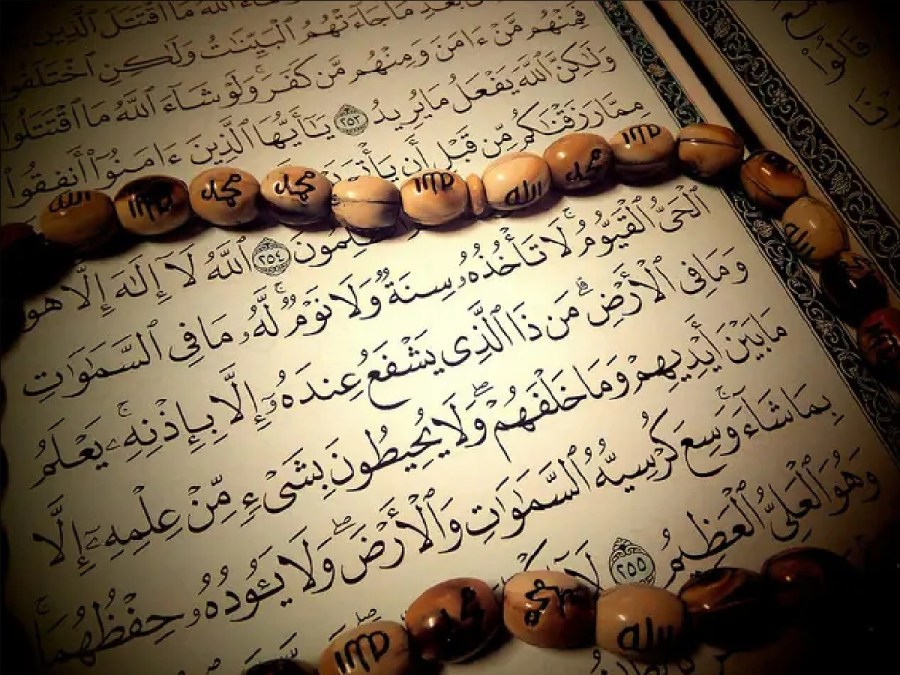 ٱللَّهُ مَا ٱقْتَتَلَ ٱلَّذِينَ
بَعْدِ مَا جَآءَتْهُمُ ٱلْبَيِّنَٰتُ وَلَٰكِنِ ٱخْتَلَفُوا۟
فَمِنْهُم مَّنْ ءَامَنَ وَمِنْهُم مَّن كَفَرَ ۚ وَلَوْ شَآءَ ٱللَّهُ مَا ٱقْتَتَلُوا۟
وَلَٰكِنَّ ٱللَّهَ يَفْعَلُ مَا يُرِيدُ ٢٥٣ يَٰٓأَيُّهَا ٱلَّذِينَ ءَامَنُوٓا۟ أَنفِقُوا۟
مِمَّا رَزَقْنَٰكُم مِّن قَبْلِ أَن
٢٥٤ ٱللَّهُ لَآ إِلَٰهَ إِلَّا هُوَ
ٱلْحَىُّ ٱلْقَيُّومُ ۚ لَا تَأْخُذُهُۥ سِنَةٌ وَلَا نَوْمٌ ۚ لَّهُۥ مَا فِى ٱلسَّمَٰوَٰتِ
وَمَا فِى ٱلْأَرْضِ ۗ مَن ذَا ٱلَّذِى يَشْفَعُ عِندَهُۥٓ إِلَّا بِإِذْنِهِۦ ۚ يَعْلَمُ
مَا بَيْنَ أَيْدِيهِمْ وَمَا خَلْفَهُمْ ۖ وَلَا يُحِيطُونَ بِشَىْءٍ مِّنْ عِلْمِهِۦٓ إِلَّا
بِمَا شَآءَ ۚ وَسِعَ كُرْسِيُّهُ ٱلسَّمَٰوَٰتِ وَٱلْأَرْضَ ۖ وَلَا يَـُٔودُهُۥ حِفْظُهُمَا ۚ
وَهُوَ ٱلْعَلِىُّ ٱلْعَظِيمُ ٢٥٥ لَآ
قَالُوا۟
الله
محمد
محمد
محمد
محمد
الله
محمد
محمد
الله
محمد
محمد
محمد
الله